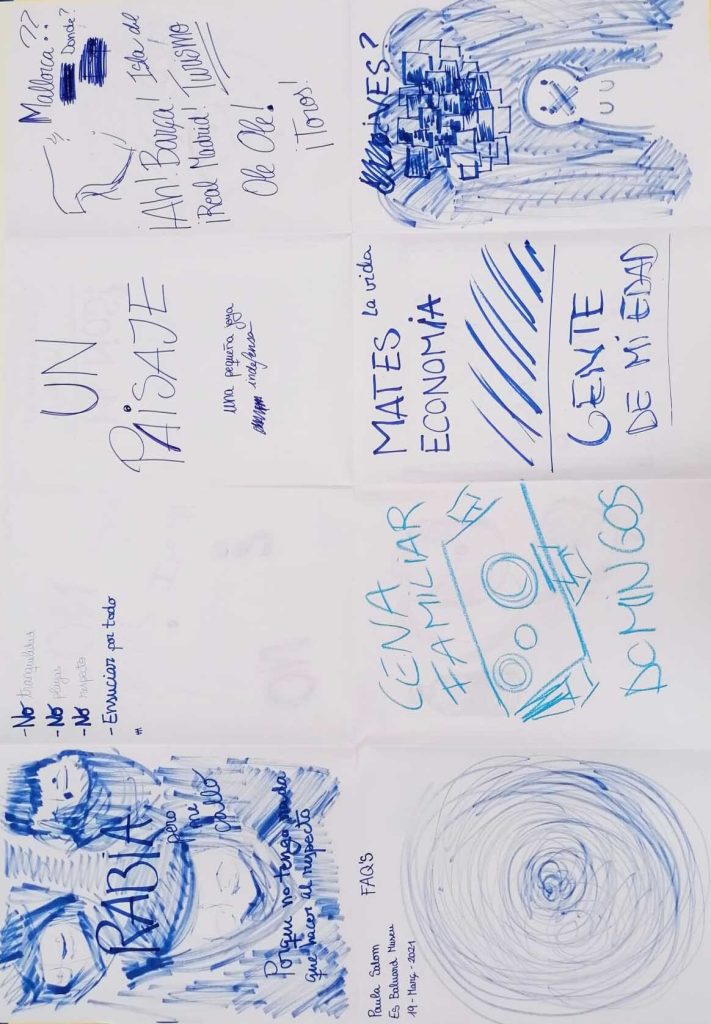 RABIA
pero me
callo
Porque no tengo nada
que hacer al respecto
- No tranquilidad
- No playas
- No respecto
- Ensuciar por todo
UN
PAiSAJE
una pequeña joya
indefensa
Mallorca??
Donde?
¡Ah! Barça! Isla del
¡Real Madrid! Turismo
Ole Ole!
¡Toros!
Paula Salom
Es Baluard Museu
19 - Març - 2021
FAQ'S
CENA
FAMILIAR
DOMINGOS
MATES la vida
ECONOMÍA
GENTE
DE Mi EDAD